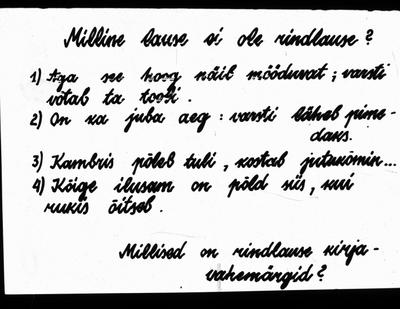 Milline lause ei ole rindlause?
1) Aga see hoog näib mööduvat; varsti
võtab ta tooli.
2) On ka juba aeg: varsti läheb pime-
daks.
3) Kambris põleb tuli, kostab jutukõmin...
4) Kõige ilusam on põld siis, kui
rukis õitseb.
Millised on rindlause kirja-
vahemärgid?